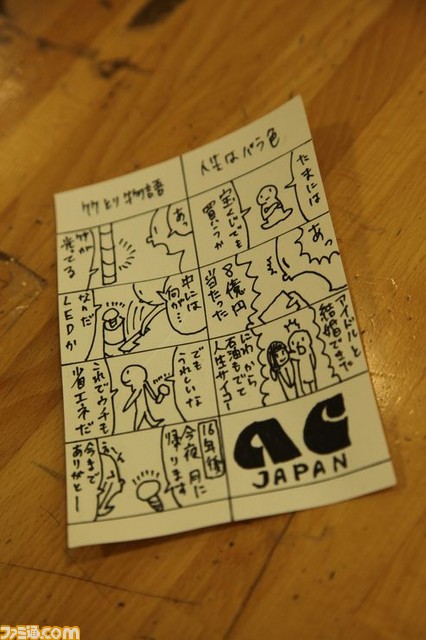 人生はバラ色
たまには
宝くじでも
買うか
あっ
8億円
当たった
アイドルと
結婚できた
にわから
石油もでて
人生サイコー
AC
JAPAN
竹とり物語
あっ
竹が
光てる
中には
何が…
なんだ
LEDか
でも
うれしいな
これでウチも
省エネだ
16年後
今夜月に
帰ります
今まで
ありがとー
ファミ通.com